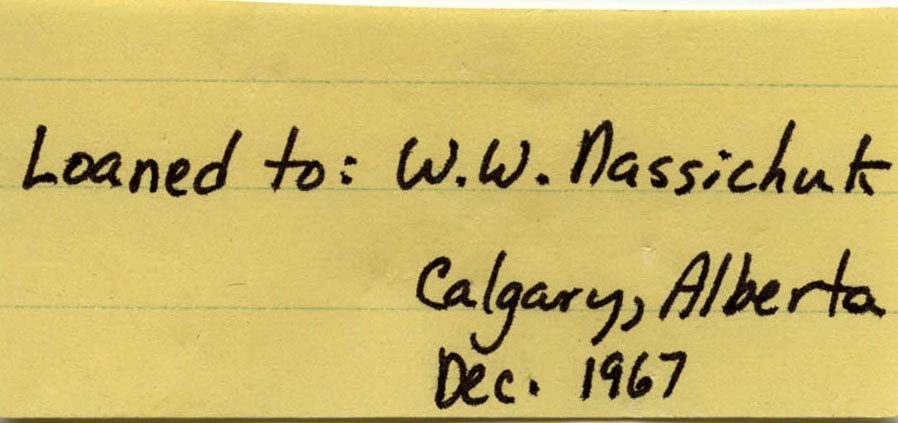 Loaned to: W.W. Nassichuk
Calgary, Alberta
Dec. 1967